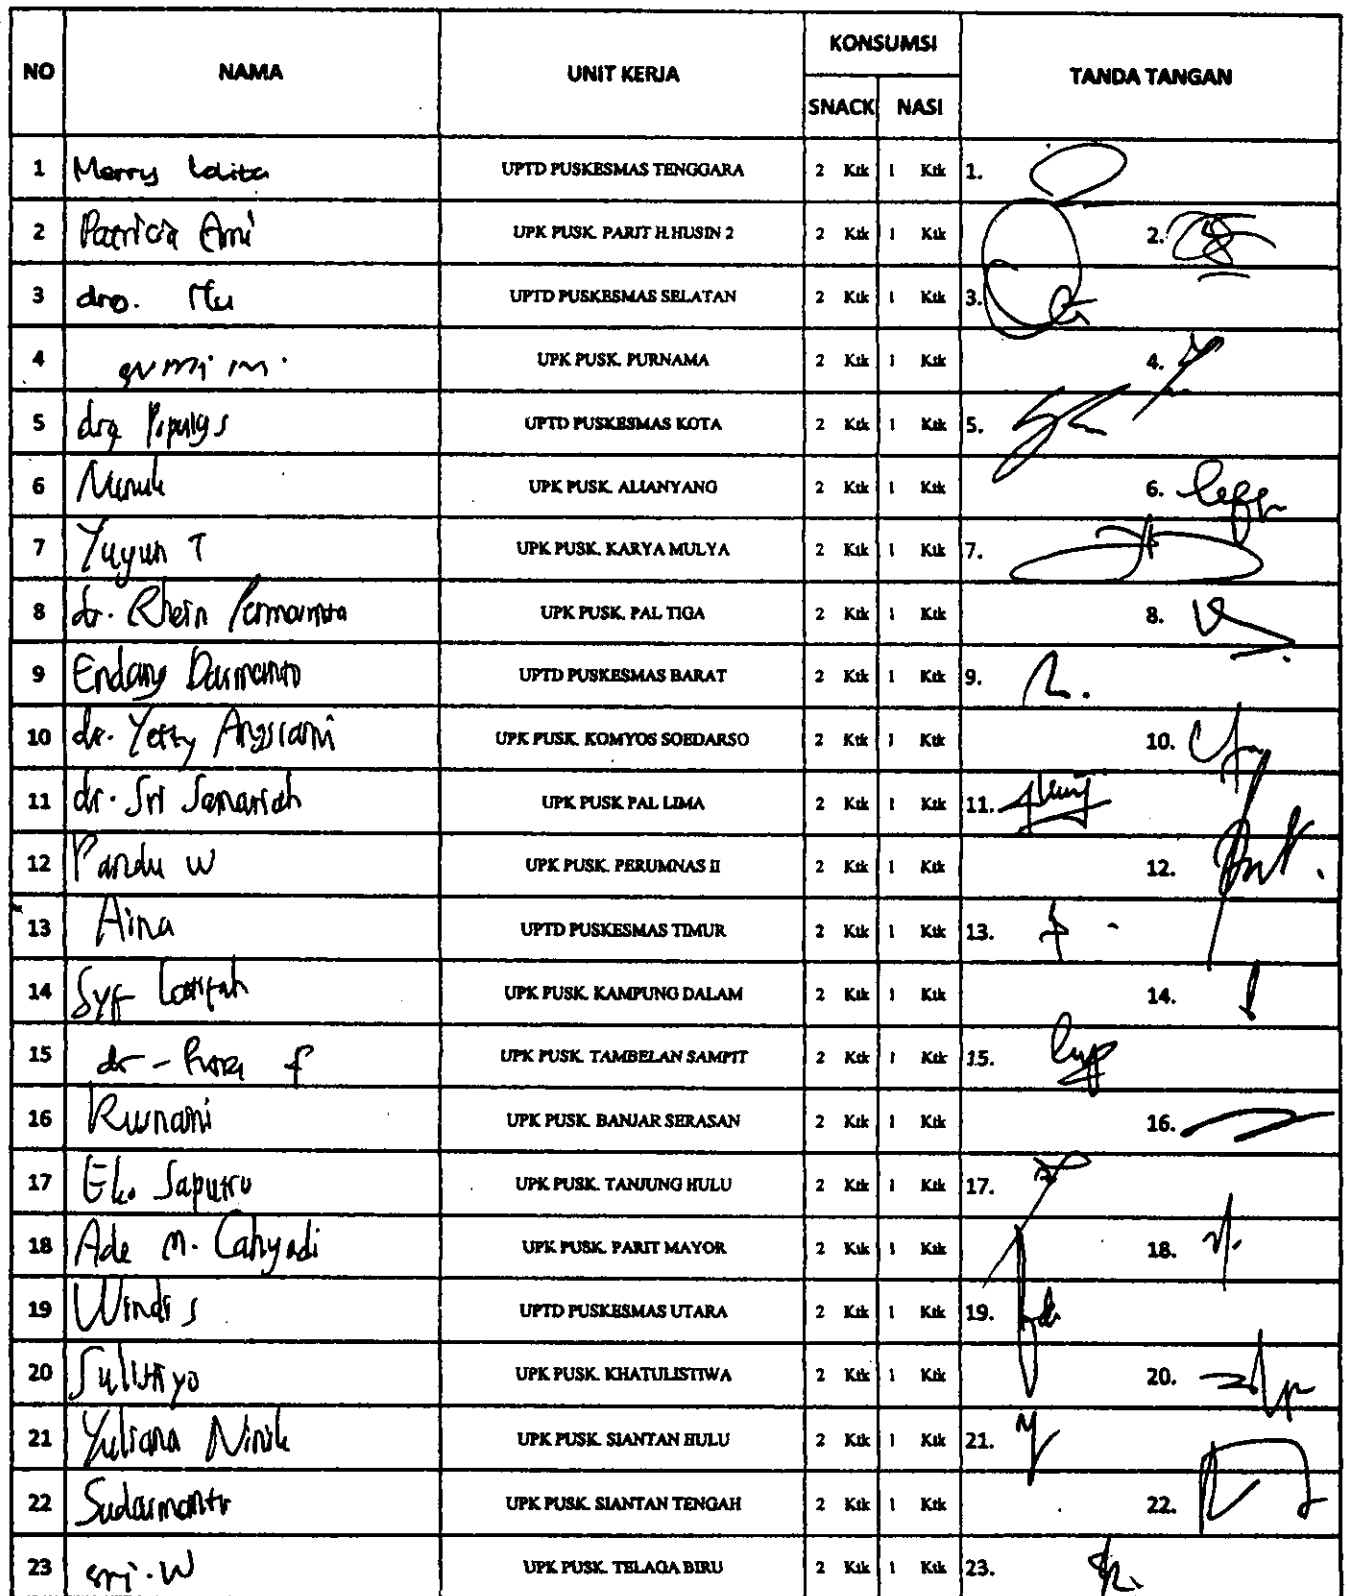 NO NAMA UNIT KERJA KONSUMSI TANDA TANGAN
SNACK NASI
1 Merry Lolita UPTD PUSKESMAS TENGGARA 2 Ktk 1 Ktk 1.
2 Patricia Ami UPK PUSK. PARIT H.HUSIN 2 2 Ktk 1 Ktk 2.
3 UPTD PUSKESMAS SELATAN 2 Ktk 1 Ktk 3.
4 UPK PUSK. PURNAMA 2 Ktk 1 Ktk 4.
5 drg UPTD PUSKESMAS KOTA 2 Ktk 1 Ktk 5.
6 UPK PUSK. ALIANYANG 2 Ktk 1 Ktk 6.
7 Yuyun T UPK PUSK. KARYA MULYA 2 Ktk 1 Ktk 7.
8 dr. Rhein UPK PUSK. PAL TIGA 2 Ktk 1 Ktk 8.
9 Endang Darmanto UPTD PUSKESMAS BARAT 2 Ktk 1 Ktk 9.
10 dr. Yetty UPK PUSK. KOMYOS SOEDARSO 2 Ktk 1 Ktk 10.
11 dr. Sri Samariah UPK PUSK PAL LIMA 2 Ktk 1 Ktk 11.
12 Pandu W UPK PUSK. PERUMNAS II 2 Ktk 1 Ktk 12.
13 Aina UPTD PUSKESMAS TIMUR 2 Ktk 1 Ktk 13.
14 Syf Latifah UPK PUSK. KAMPUNG DALAM 2 Ktk 1 Ktk 14.
15 dr UPK PUSK. TAMBELAN SAMPIT 2 Ktk 1 Ktk 15.
16 UPK PUSK. BANJAR SERASAN 2 Ktk 1 Ktk 16.
17 Eko Saputro UPK PUSK. TANJUNG HULU 2 Ktk 1 Ktk 17.
18 Ade M. Cahyadi UPK PUSK. PARIT MAYOR 2 Ktk 1 Ktk 18.
19 Windi S UPTD PUSKESMAS UTARA 2 Ktk 1 Ktk 19.
20 Sulistiyo UPK PUSK. KHATULISTIWA 2 Ktk 1 Ktk 20.
21 Yuliana Ninik UPK PUSK. SIANTAN HULU 2 Ktk 1 Ktk 21.
22 Sudarmanto UPK PUSK. SIANTAN TENGAH 2 Ktk 1 Ktk 22.
23 UPK PUSK. TELAGA BIRU 2 Ktk 1 Ktk 23.